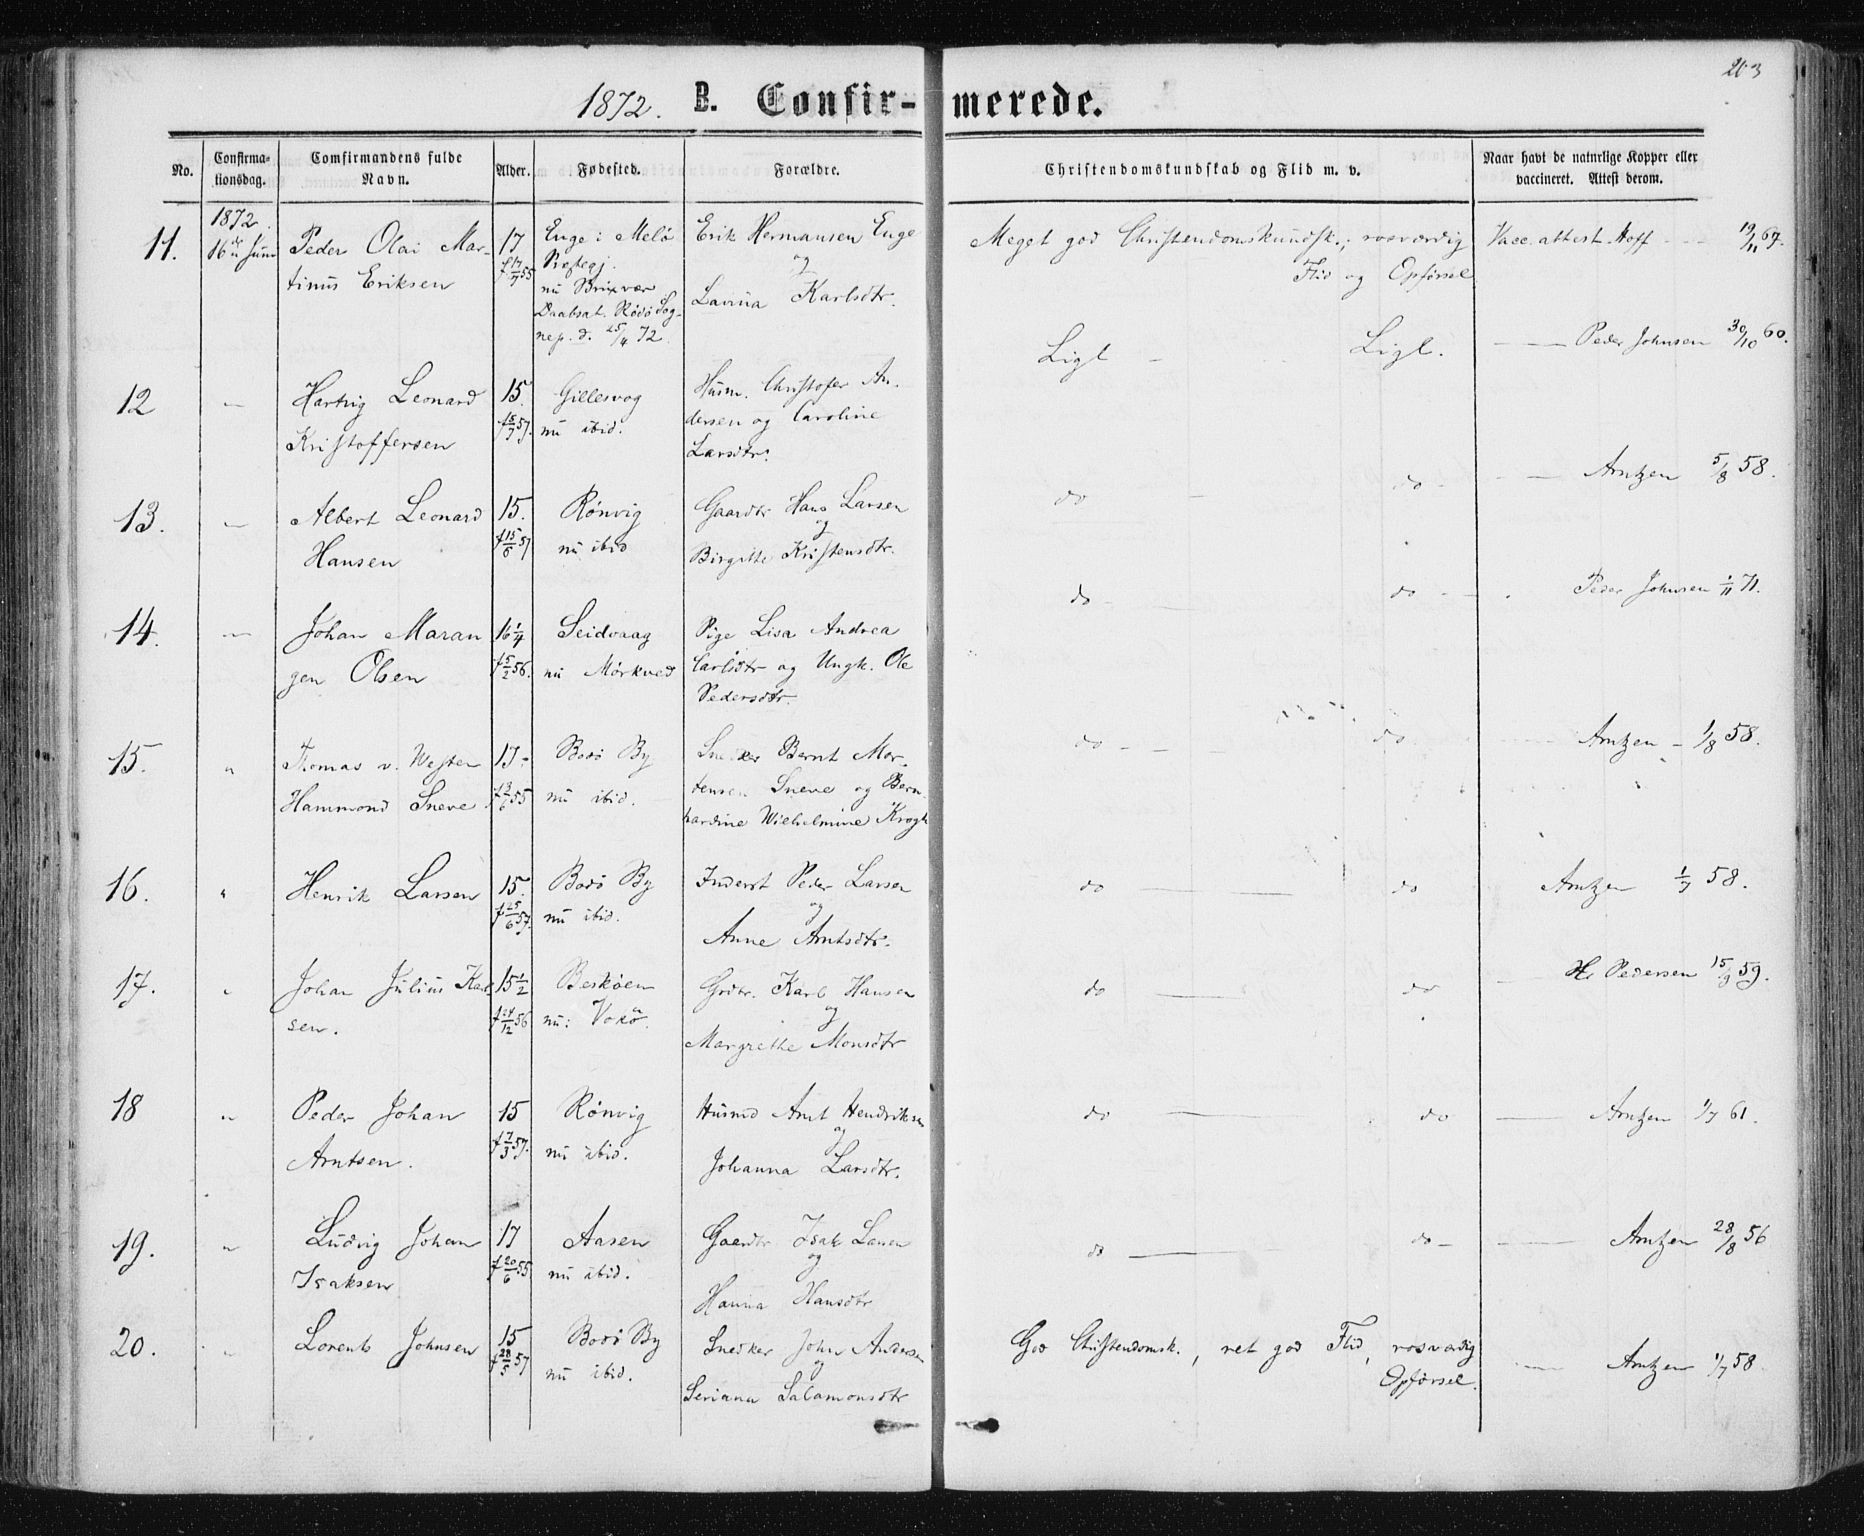 203
1872. B. Confir- merede.
No. Confirma-tionsdag. Comfirmandens fulde Navn. Alder. Fødested. Forældre. Christendomskundskab og Flid m. v. Naar havt de naturlige Kopper eller vaccineret. Attest derom.
1872.
11. 16de Juni Peder Olai Mar- 17 Enge i Melö Erik Hermansen Enge Meget god Christendomskundsk.; rosværdig Vacc. attest Hoff 19/11 67.
tinus Eriksen f 17/7 55 Præstegj. og Flid og Opførsel
nu Brixvær Lavina Karlsdtr.
Daabsat. Rødö Sog-
nep. d. 25/4 72.
Ligl - Ligl. — Peder Johnsen 30/10 60.
12 — Hartvig Leonard 15. Gillesvog Husm. Christofer An-
Kristoffersen f 15/7 57. nu ibid. dersen og Caroline
Larsdtr.
do - do - - — Arntzen 5/8 58.
13. — Albert Leonard 15. Rønvig Gaardbr Hans Larsen
og
Hansen f 15/6 57 nu ibid Birgitte Kristensdtr.
do - — do - - Peder Johnsen 1/11 71.
14. — Johan Maran 16 1/4 Seidvaag Pige Lisa Andrea
gen Olsen f 5/2 56. nu Mørkved Carlsdtr og Ungk. Ole
Pedersdtr.
do - - do — Arntzen - 1/8 58.
15. " Thomas v. Westen 17 - Bodö By Snedker Bernt Mor-
Hammond Sneve f 3/6 55 nu ibid. tensen Sneve og Bern
hardine Wilhelmine Krogh
16. " Henrik Larsen 15. Bodö By Inderst Peder Larsen do — do Arntzen 1/7 58.
f 25/6 57. nu ibid. og
Anne Arntsdtr.
17. " Johan Julius Karl 15 1/2 Besköen Grdbr. Karl Hansen do — do - Hr Pedersen 15/9 59.
sen. f 24/12 56 nu: og
Margrethe Monsdtr
18 " Peder Johan 15 Rönvig Husmd Arnt Hendriksen do — do — Arntzen 1/7 61.
Arntsen. f 7/3 57. nu ibid. og
Johanna Larsdtr.
19. " Ludvig Johan 17 Aasen Gaardbr Isak Larsen do — do - — Arntzen 28/8 56
Isaksen f 20/6 55 nu ibid. og
Hanna Hansdtr
20. " Lorents Johnsen 15 Bodö By Snedker John Andersen God Christendomsk., ret god Flid, rosværdig — Arntzen 1/7 58.
f 28/5 57 nu ibid. og Opførsel.
Seriana Salamonsdtr